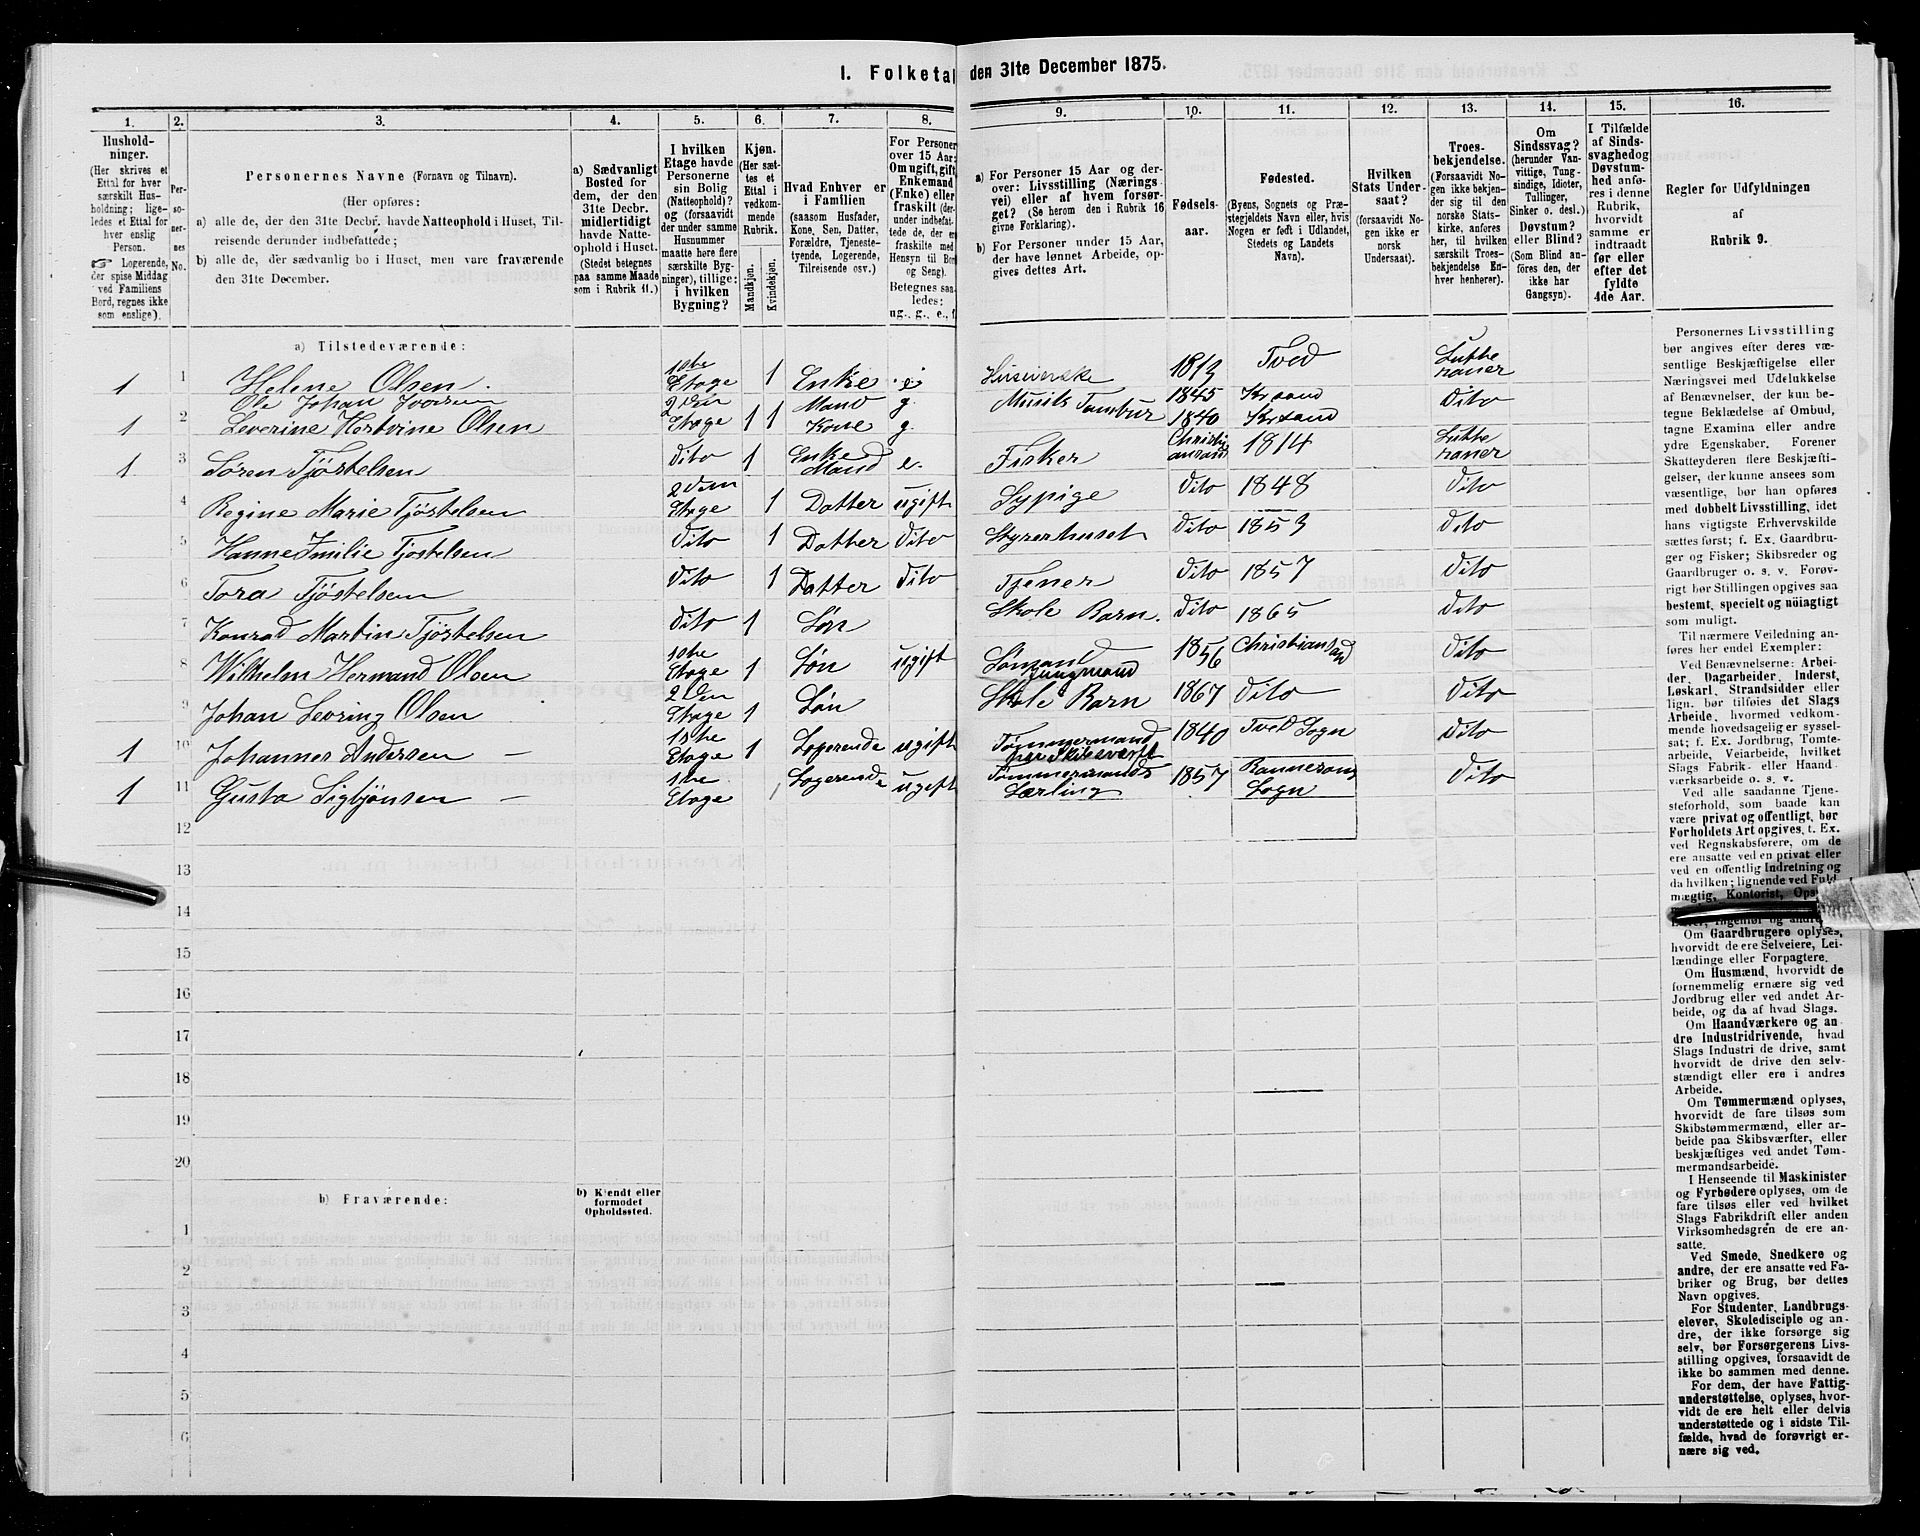 I. Folketa den 31te December 1875.
1. 2. 3. 4. 5. 6. 7. 8. 9. 10. 11. 12. 13. 14. 15. 16.
Hushold-
ninger.
(Her skrives et
Ettal for hver
særskilt Hus-
holdning; lige-
ledes et Ettal for
hver enslig
Person.
Logerende,
der spise Middag
ved Familiens
Bord, regnes ikke
som enslige).
Per-
so-
ner-
nes
No.
Personernes Navne (Fornavn og Tilnavn).
(Her opføres:
a) alle de, der den 31te Decbr. havde Natteophold i Huset, Til-
reisende derunder indbefattede;
b) alle de, der sædvanlig bo i Huset, men vare fraværende
den 31te December.
a) Sædvanligt
Bosted for
dem, der den
31te Decbr.
midlertidigt
havde Natte-
ophold i Huset.
(Stedet betegnes
paa samme Maade
som i Rubrik 11.)
I hvilken
Etage havde
Personerne
sin Bolig
(Natteophold)?
og (forsaavidt
der under samme
Husnummer
maatte høre flere
særskilte Byg-
ninger), tillige:
i hvilken
Bygning?
Kjøn.
(Her sæt-
tes et
Ettal i
vedkom-
mende
Rubrik.
Mandkjøn.
Kvindekjøn.
Hvad Enhver er
i Familien
(saasom Husfader,
Kone, Søn, Datter,
Forældre, Tjeneste-
tyende, Logerende,
Tilreisende osv.)
For Personer
over 15 Aar:
Om ugift, gift,
Enkemand
(Enke) eller
fraskilt (der-
under indbefat-
tede de, der ere
fraskilte med
Hensyn til Bord
og Seng).
Betegnes saa-
ledes:
ug., g., e., f.
a) For Personer 15 Aar og der-
over: Livsstilling (Nærings-
vei) eller af hvem forsør-
get? (Se herom den i Rubrik 16
givne Forklaring).
b) For Personer under 15 Aar,
der have lønnet Arbeide, op-
gives dettes Art.
Fødsels-
aar.
Fødested.
(Byens, Sognets og Præ-
stegjeldets Navn eller, hvis
Nogen er født i Udlandet,
Stedets og Landets
Navn).
Hvilken
Stats Under-
saat?
(forsaavidt No-
gen ikke er
norsk
Undersaat).
Troes-
bekjendelse.
(Forsaavidt No-
gen ikke bekjen-
der sig til den
norske Stats-
kirke, anføres
her, til hvilken
særskilt Troes-
bekjendelse En-
hver henhører).
Om
Sindssvag?
(herunder Van-
vittige, Tung-
sindige, Idioter,
Tullinger,
Sinker o. desl.)
Døvstum?
eller Blind?
(Som Blind an-
føres den, der
ikke har
Gangsyn).
I Tilfælde
af Sinds-
svaghed og
Døvstum-
hed anfø-
res i denne
Rubrik,
hvorvidt
samme er
indtraadt
før eller
efter det
fyldte
4de Aar.
Regler for Udfyldningen
af
Rubrik 9.
a) Tilstedeværende:
1 1 Helene Olsen. 1ste Etage 1 Enke e 1813 Tved Luthe raner
Ole Johan Iversen 2den 1 Mand g. Musik Tambur 1845 Krsand Dito
1 2 Leverine Hortvine Olsen Etage 1 Kone g. 1840 Krsand
1 3 Søren Tjøstelsen Dito 1 Enke Mand e. Fisker Christi ansand 1814 Luthe raner
4 Regine Marie Tjøstelsen 2den Etage 1 Datter ugift Sypige Dito 1848 Dito
5 Hanne Emilie Tjøstelsen Dito 1 Datter Dito Styrerhuset Dito 1853 Dito
6 Tora Tjøstelsen Dito 1 Datter Dito Tjener Dito 1857 Dito
7 Konrad Martin Tjøstelsen Dito 1 Søn Skole Barn. Dito 1865 Dito
8 Wilhelm Hermand Olsen 1ste Etage 1 Søn ugift Sømand Jungmand 1856 Christiansand Dito
9 Johan Levring Olsen 2den Etage 1 Søn Skole Barn 1867 Dito Dito
1 10 Johannes Andersen – 1ste Etage 1 Logerende ugift Tømmermand 1840 Tved Sogn Dito
1 11 Gusta Sigbjønsen – 1ste Etage Logerende ugift Tømmermands Lærling 1857 Sogn Dito
12
13
14
15
16
17
18
19
20
b) Fraværende:
b) Kjendt eller
formodet
Opholdssted.
1
2
3
4
5
6
Personernes Livsstilling
bør angives efter deres væ-
sentlige Beskjæftigelse eller
Næringsvei med Udelukkelse
af Benævnelser, der kun be-
tegne Beklædelse af Ombud,
tagne Examina eller andre
ydre Egenskaber. Forener
Skatteyderen flere Beskjæfti-
gelser, der kunne ansees som
væsentlige, bør han opføres
med dobbelt Livsstilling, idet
hans vigtigste Erhvervskilde
sættes først; f. Ex. Gaardbru-
ger og Fisker; Skibsreder og
Gaardbruger o. s. v. Forøv-
rigt bør Stillingen opgives saa
bestemt, specielt og nöiagtigt
som muligt.
Til nærmere Veiledning an-
føres her endel Exempler:
Ved Benævnelserne: Arbei-
der, Dagarbeider, Inderst,
Løskarl, Strandsidder eller
lign. bør tilføies det Slags
Arbeide, hvormed vedkom-
mende hovedsagelig er syssel-
sat; f. Ex. Jordbrug, Tomte-
arbeide, Veiarbeide, hvilket
Slags Fabrik- eller Haand-
værksarbeide o. s. v.
Ved alle saadanne Tjene-
steforhold, som baade kan
være privat og offentligt, bør
Forholdets Art opgives, t. Ex.
ved Regnskabsførere, om de
ere ansatte ved en privat eller
ved en offentlig Indretning og
da hvilken; lignende ved Fuld-
mægtig, Kontorist, Ops
Om Gaardbrugere oplyses,
hvorvidt de ere Selveiere, Lei-
lændinge eller Forpagtere.
Om Husmænd, hvorvidt de
fornemmelig ernære sig ved
Jordbrug eller ved andet Ar-
beide, og da af hvad Slags.
Om Haandværkere og an
dre Industridrivende, hvad
Slags Industri de drive, samt
hvorvidt de drive den selv-
stændigt eller ere i andres
Arbeide.
Om Tømmermænd oplyses,
hvorvidt de fare tilsøs som
Skibstømmermænd, eller ar-
beide paa Skibsværfter, eller
beskjæftiges ved andet Tøm-
mermandsarbeide.
I Henseende til Maskinister
og Fyrbødere oplyses, om de
fare tilsøs eller ved hvilket
Slags Fabrikdrift eller anden
Virksomhedsgren de ere an-
satte.
Ved Smede, Snedkere og
andre, der ere ansatte ved Fa-
briker og Brug, bør dettes
Navn opgives.
For Studenter, Landbrugs-
elever, Skoledisciple og an-
dre, der ikke forsørge sig
selv, bør Forsørgerens Livs-
stilling opgives, forsaavidt de
ikke bo sammen med denne.
For dem, der have Fattig-
understøttelse, oplyses, hvor-
vidt de ere helt eller delvis
understøttede og i sidste Til-
fælde, hvad de forøvrigt er-
nære sig ved.